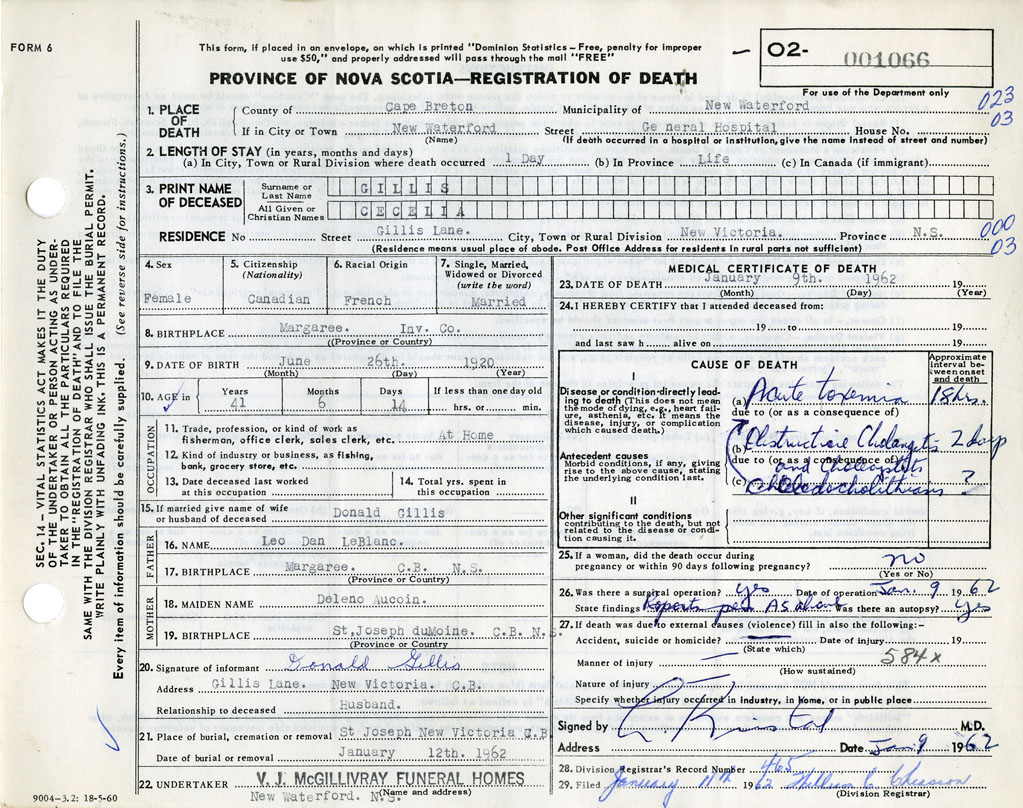 FORM 6
This form, if placed in an envelope, on which is printed "Dominion Statistics – Free, penalty for improper
use $50," and properly addressed will pass through the mail "FREE"
O2-
001066
For use of the Department only
PROVINCE OF NOVA SCOTIA—REGISTRATION OF DEATH
023
03
1. PLACE OF DEATH
County of Cape Breton Municipality of New Waterford
If in City or Town New Waterford Street Ge neral Hospital House No.
(Name) (If death occurred in a hospital or institution, give the name instead of street and number)
2. LENGTH OF STAY (in years, months and days)
(a) In City, Town or Rural Division where death occurred 1 Day (b) In Province Life (c) In Canada (if immigrant)
3. PRINT NAME OF DECEASED
Surname or Last Name GILLIS
All Given or Christian Names CECELIA
RESIDENCE No Street Gillis Lane. City, Town or Rural Division New Victoria. Province N.S.
(Residence means usual place of abode. Post Office Address for residents in rural parts not sufficient)
000
03
4. Sex
Female
5. Citizenship (Nationality)
Canadian
6. Racial Origin
French
7. Single, Married, Widowed or Divorced (write the word)
Married
8. BIRTHPLACE Margaree. Inv. Co.
((Province or Country)
9. DATE OF BIRTH June 26th. 1920
(Month) (Day) (Year)
10. AGE in
Years 41
Months 6
Days 14
If less than one day old
hrs. or min.
OCCUPATION
11. Trade, profession, or kind of work as
fisherman, office clerk, sales clerk, etc. At Home
12. Kind of industry or business, as fishing,
bank, grocery store, etc.
13. Date deceased last worked
at this occupation
14. Total yrs. spent in
this occupation
15. If married give name of wife
or husband of deceased Donald Gillis
FATHER
16. NAME Leo Dan LeBlanc.
17. BIRTHPLACE Margaree. C.B. N.S.
(Province or Country)
MOTHER
18. MAIDEN NAME Deleno Aucoin.
19. BIRTHPLACE St,Joseph duMoine. C.B. N.S.
(Province or Country
20. Signature of informant Donald Gillis
Address Gillis Lane. New Victoria. C.B.
Relationship to deceased Husband.
21. Place of burial, cremation or removal St Joseph New Victoria C.B
Date of burial or removal January 12th. 1962
22. UNDERTAKER V. J. McGILLIVRAY FUNERAL HOMES
New Waterford. N.S. (Name and address)
9004-3.2: 18-5-60
MEDICAL CERTIFICATE OF DEATH
23. DATE OF DEATH January 9th. 1962 19
(Month) (Day) (Year)
24. I HEREBY CERTIFY that I attended deceased from:
19 to 19
and last saw h alive on 19
CAUSE OF DEATH
Approximate interval between onset and death
I
Disease or condition directly leading to death (This does not mean the mode of dying, e.g., heart failure, asthenia, etc. It means the disease, injury, or complication which caused death.)
(a) Acute toxemia 18 hrs.
due to (or as a consequence of)
Antecedent causes
Morbid conditions, if any, giving rise to the above cause, stating the underlying condition last.
(b) Obstructive 2 days
due to (or as a consequence of)
and
(c) ?
II
Other significant conditions
contributing to the death, but not related to the disease or condition causing it.
25. If a woman, did the death occur during
pregnancy or within 90 days following pregnancy? no
(Yes or No)
26. Was there a surgical operation? yes Date of operation Jan. 9 1962
State findings As above Was there an autopsy? yes
27. If death was due to external causes (violence) fill in also the following:–
Accident, suicide or homicide? Date of injury 19
(State which)
584x
Manner of injury
(How sustained)
Nature of injury
Specify whether injury occurred in industry, in home, or in public place
Signed by M.D.
Address Date Jan. 9 1962
28. Division Registrar's Record Number 465
29. Filed January 11th 1962
(Division Registrar)
SEC. 14 – VITAL STATISTICS ACT MAKES IT THE DUTY
OF THE UNDERTAKER OR PERSON ACTING AS UNDERTAKER
TO OBTAIN ALL THE PARTICULARS REQUIRED
IN THE "REGISTRATION OF DEATH" AND TO FILE THE
SAME WITH THE DIVISION REGISTRAR WHO SHALL ISSUE THE BURIAL PERMIT.
WRITE PLAINLY WITH UNFADING INK. THIS IS A PERMANENT RECORD.
Every item of information should be carefully supplied. (See reverse side for instructions.)